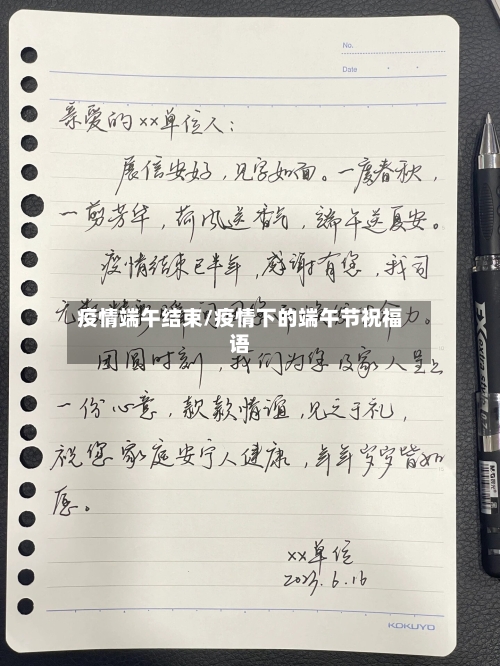 No.
Date
亲爱的xx单位人：
展信安好，见字如面。一度春秋，
一剪芳华，荷风送香气，端午送夏安。
疫情结束已半年，感谢有您，我司
疫情端午结束/疫情下的端午节祝福
语
团圆时刻，我们为您及家人呈上
一份心意，款款情谊，见之于礼，
祝您家庭安宁人健康，年年岁岁皆如
愿。
xx单位
2023.6.16
KOKUYO
M&G